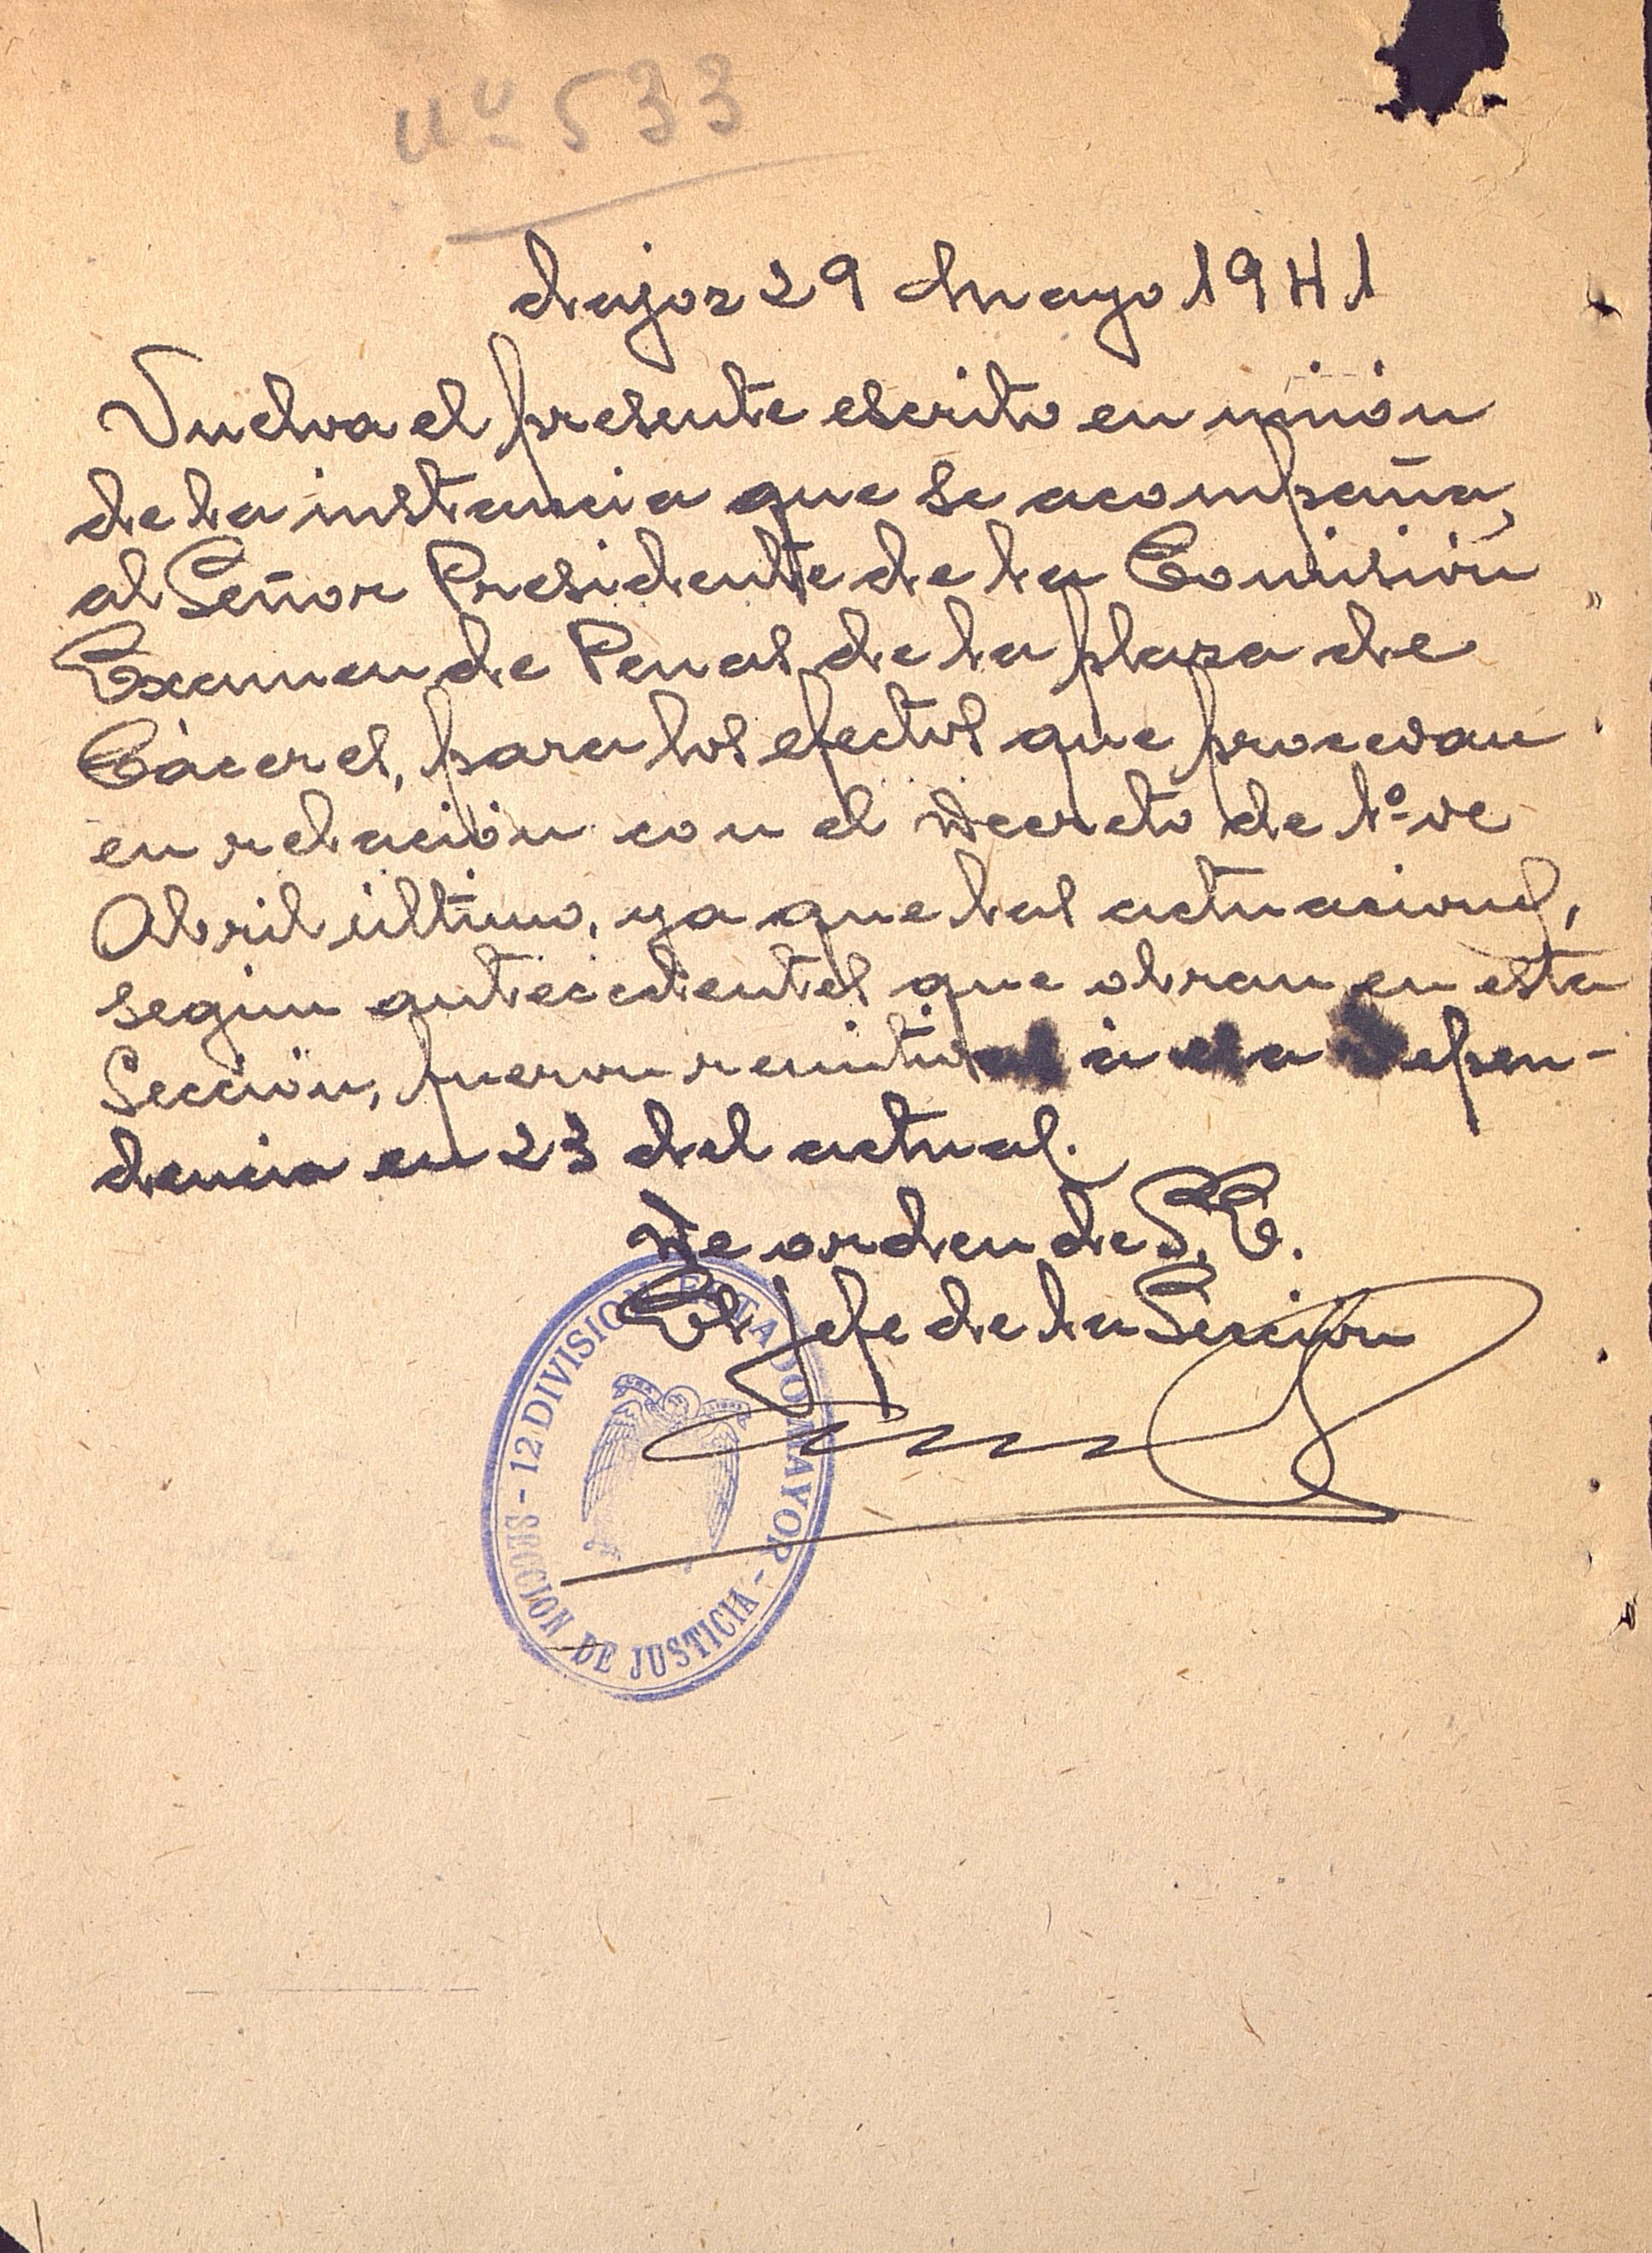 nº 533
29 Mayo 1941
Vuelva el presente escrito en unión
de la instancia que se acompaña,
al Señor Presidente de la Comisión
Examen de Penas de la plaza de
Cáceres, para los efectos que procedan
en relación con el Decreto de 1º de
Abril último, ya que las actuaciones,
según antecedentes que obran en esta
Sección, fueron remitidas a esa Depen-
dencia en 23 del actual.
De orden de S.E.
El Jefe de la Sección
12 DIVISION - ESTADO MAYOR - SECCION DE JUSTICIA -